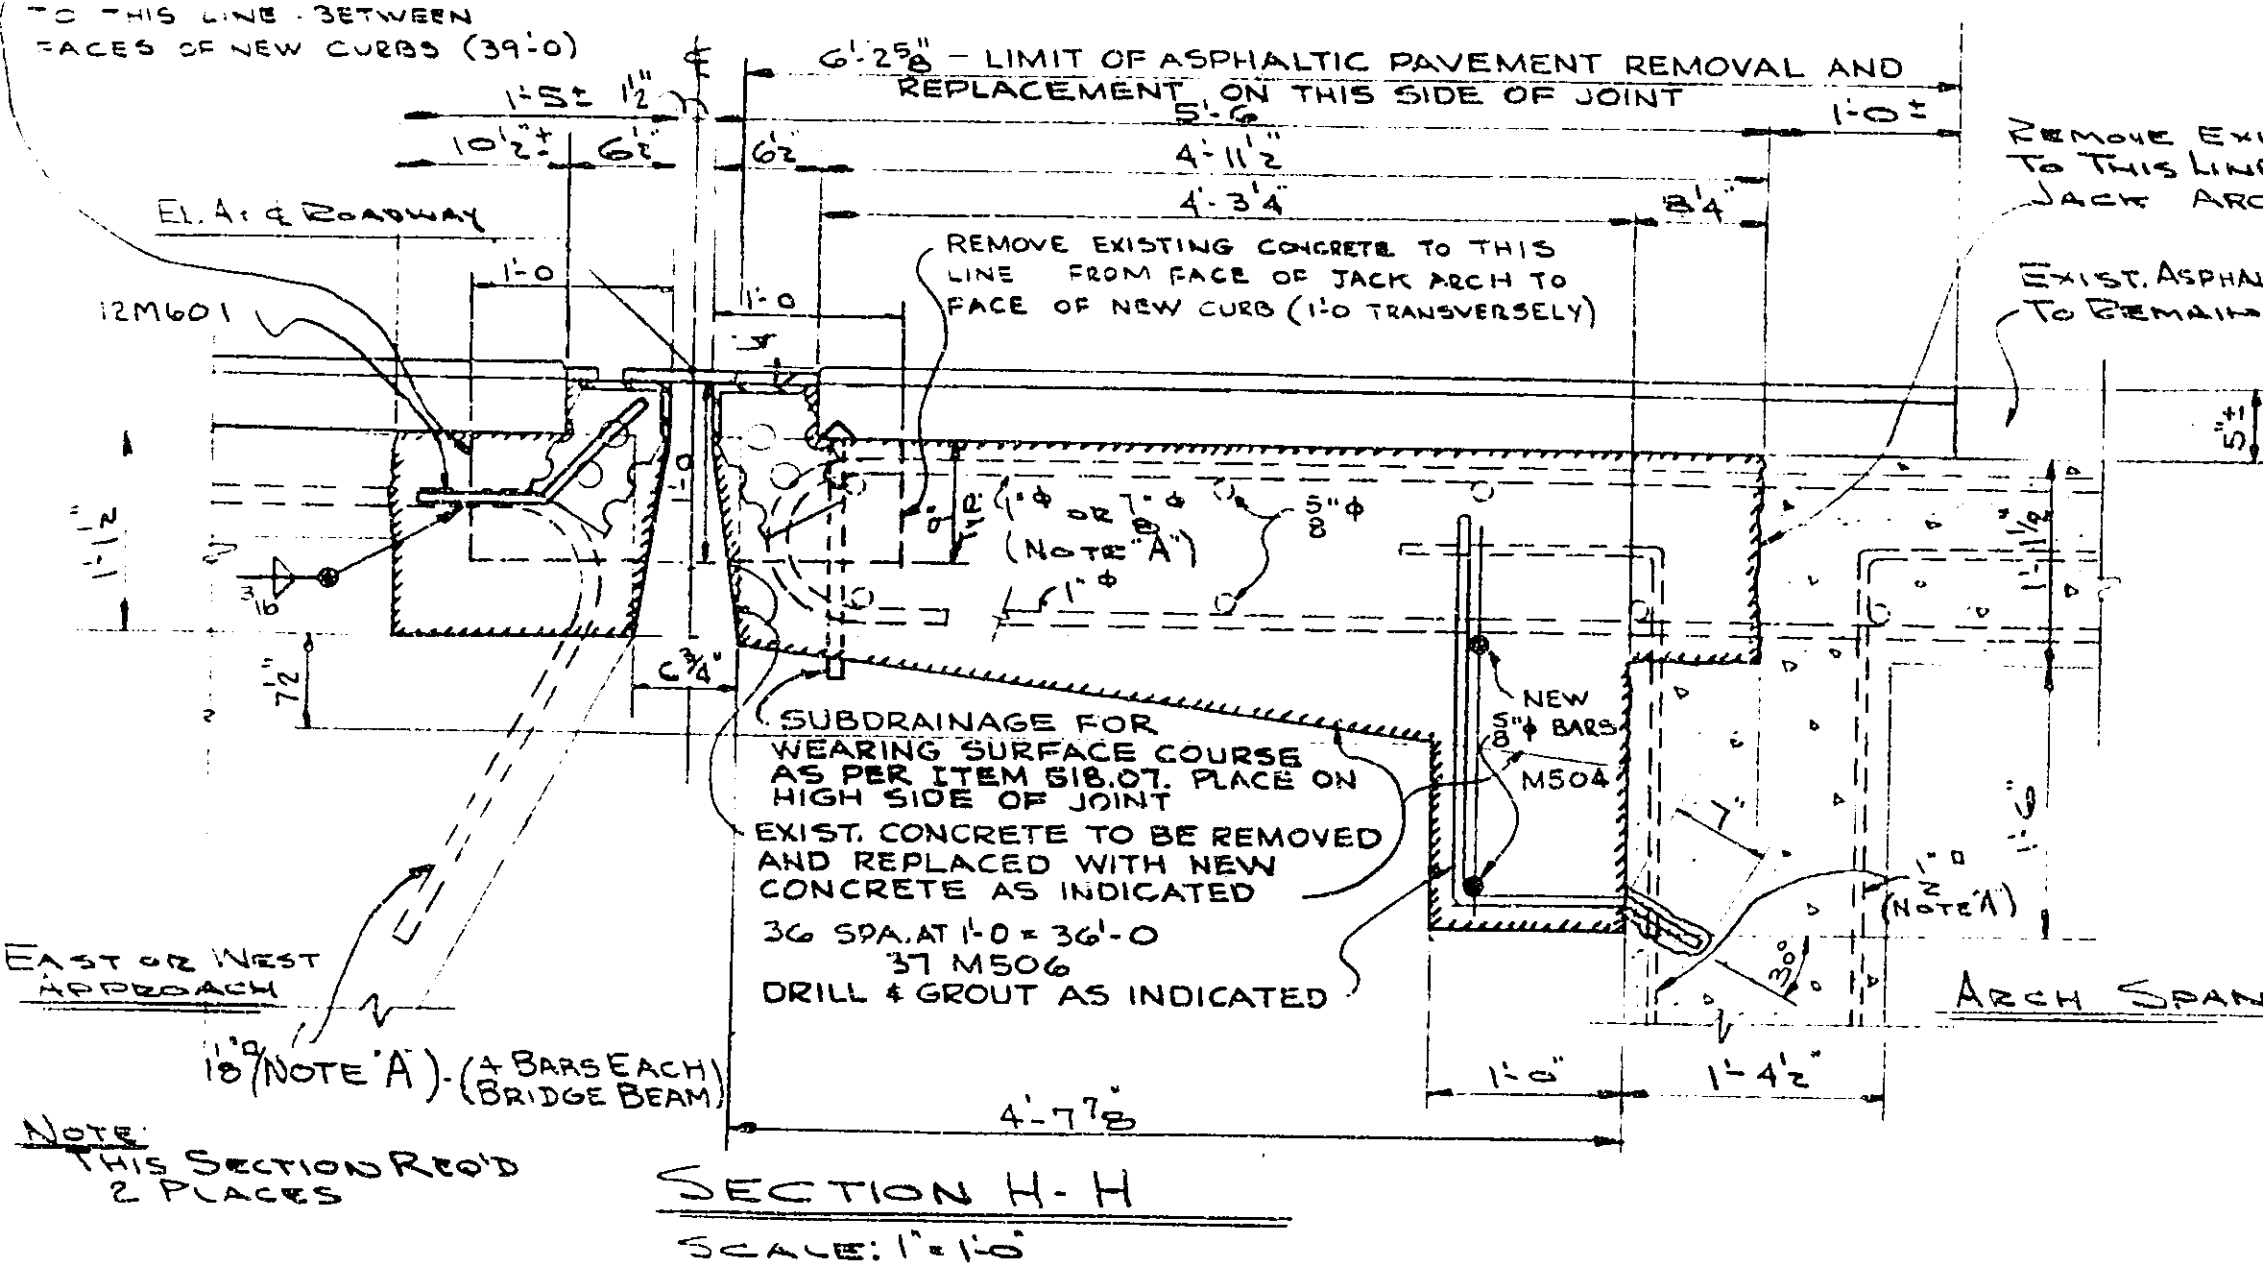 TO THIS LINE BETWEEN
FACES OF NEW CURBS (39'-0)
℄
6'-2 5/8" - LIMIT OF ASPHALTIC PAVEMENT REMOVAL AND
REPLACEMENT ON THIS SIDE OF JOINT
1'-5± 1 1/2"
5'-6
1'-0±
10 1/2"± 6 1/2" 6 1/2
4'-11 1/2
4'-3 1/4" 8 1/4"
REMOVE EXI
TO THIS LINE
JACK ARC
EL. AT ℄ ROADWAY
REMOVE EXISTING CONCRETE TO THIS
LINE FROM FACE OF JACK ARCH TO
FACE OF NEW CURB (1'-0 TRANSVERSELY)
EXIST. ASPHAL
TO REMAIN
1'-0
1'-0
12M601
5"±
1'-1 1/2"
1"ϕ OR 7/8"ϕ
(NOTE "A")
5/8"ϕ
1"ϕ
1'-1 1/2"
3/16
7 1/2"
6 3/4"
NEW
5/8"ϕ BARS
M504
SUBDRAINAGE FOR
WEARING SURFACE COURSE
AS PER ITEM 518.07. PLACE ON
HIGH SIDE OF JOINT
EXIST. CONCRETE TO BE REMOVED
AND REPLACED WITH NEW
CONCRETE AS INDICATED
36 SPA. AT 1'-0 = 36'-0
37 M506
DRILL & GROUT AS INDICATED
7"
1'-6"
1/2"□
(NOTE "A")
30°
EAST OR WEST
APPROACH
ARCH SPAN
1 1/8"□ (NOTE "A") - (4 BARS EACH
BRIDGE BEAM)
1'-0" 1'-4 1/2"
4'-7 7/8"
NOTE:
THIS SECTION REQ'D
2 PLACES
SECTION H-H
SCALE: 1" = 1'-0"